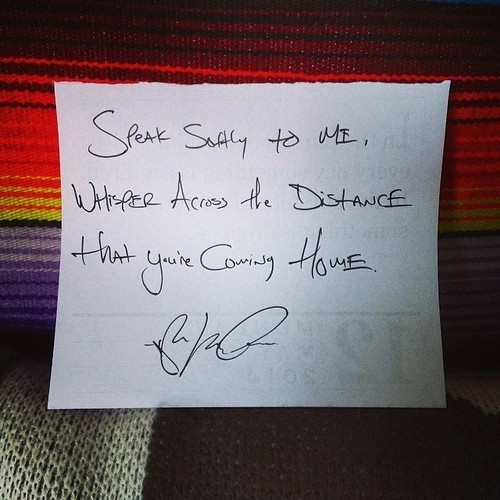 Speak Softly to me,
Whisper Across the Distance
that you're Coming Home.